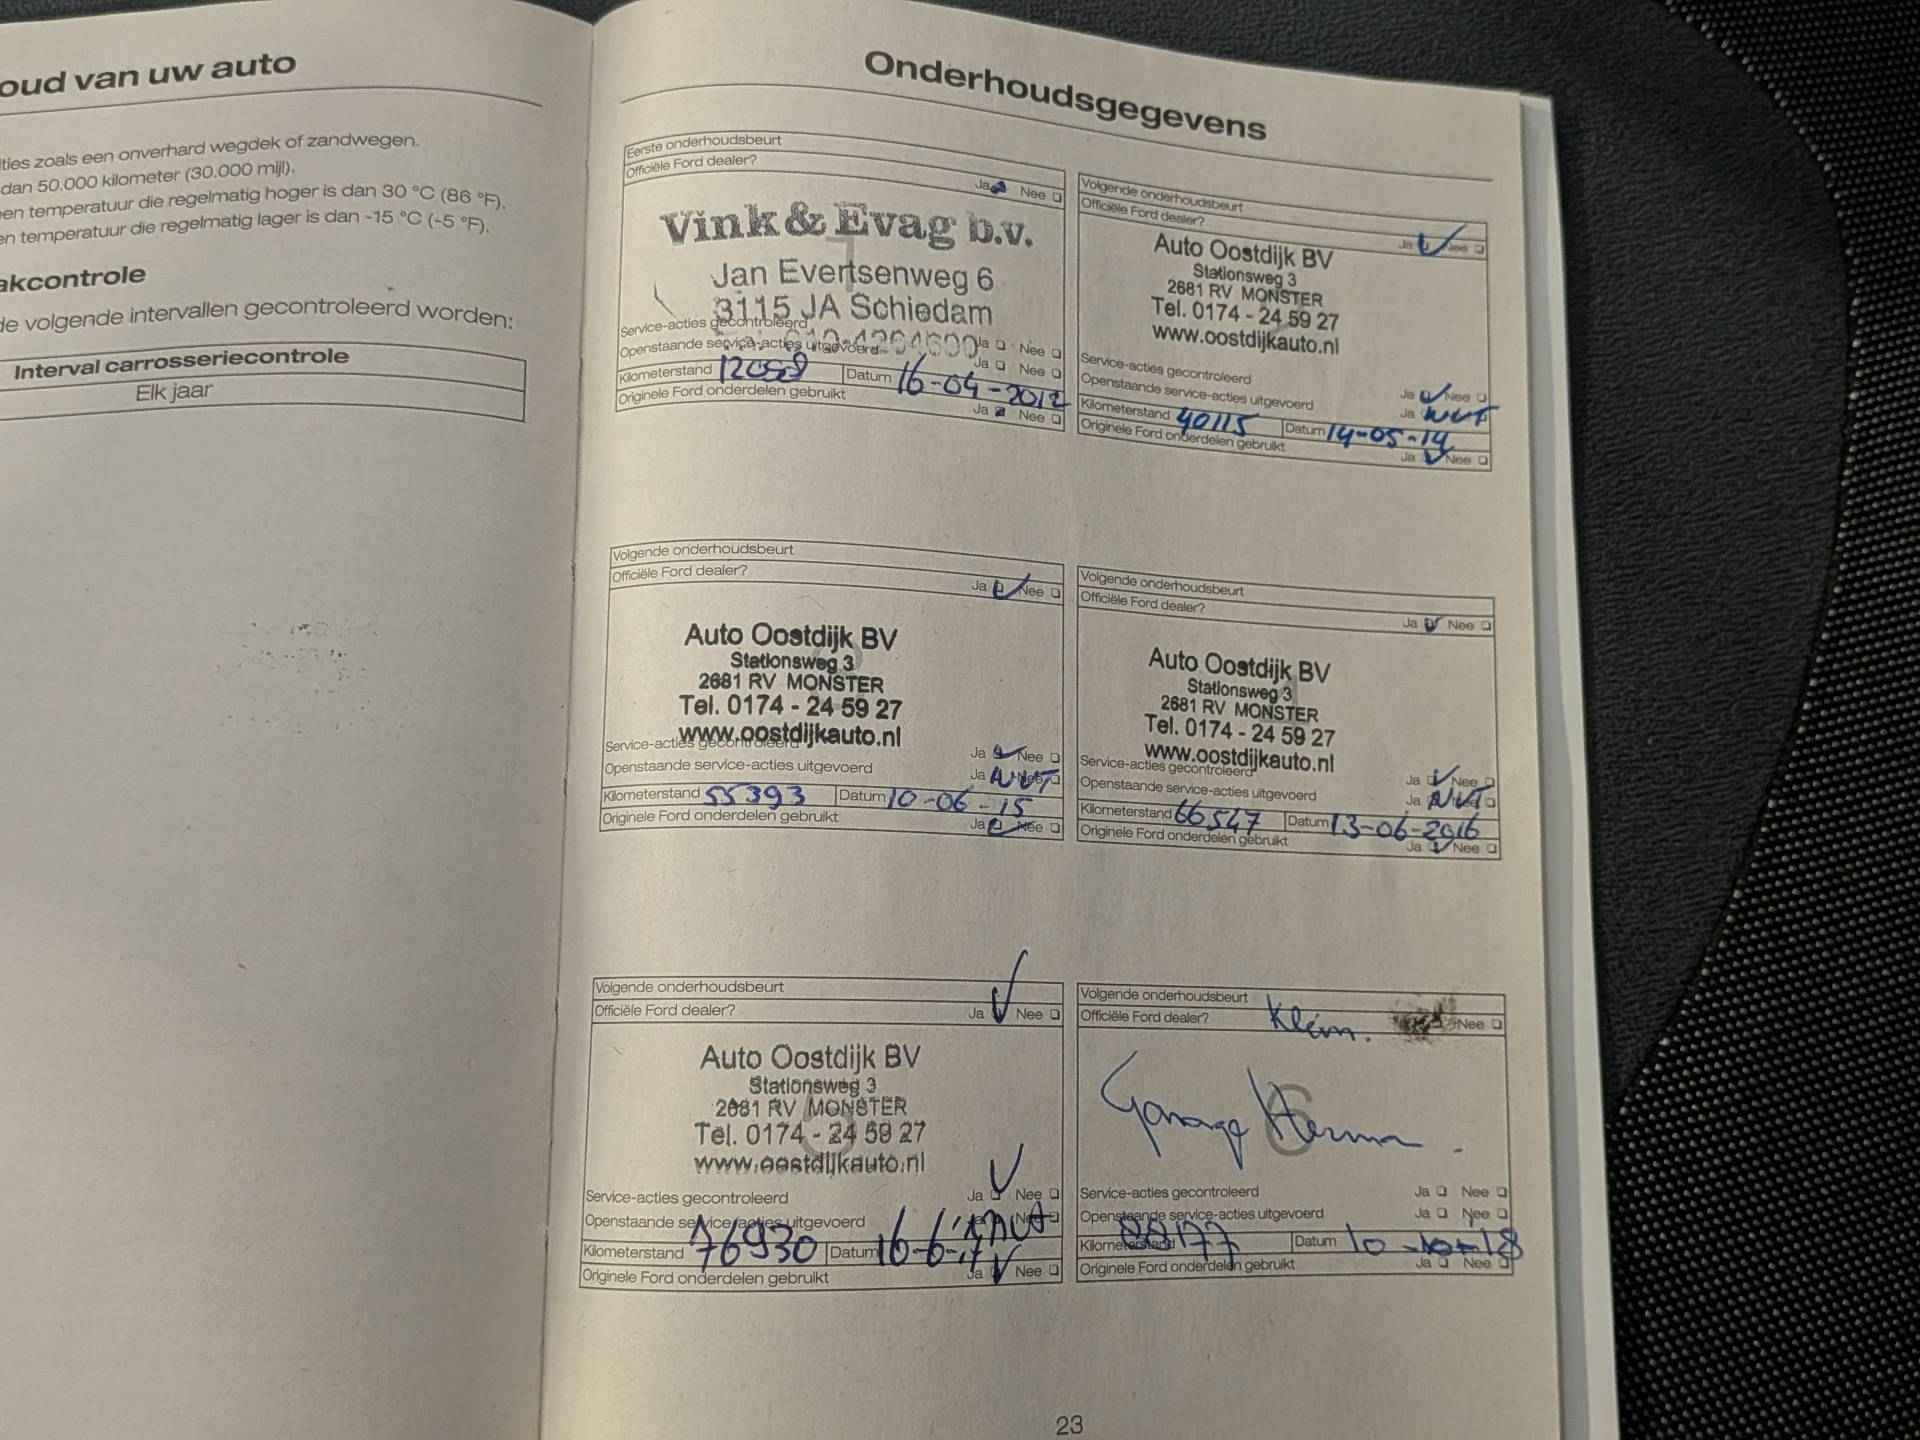 oud van uw auto
ties zoals een onverhard wegdek of zandwegen.
dan 50.000 kilometer (30.000 mijl).
en temperatuur die regelmatig hoger is dan 30 °C (86 °F).
en temperatuur die regelmatig lager is dan -15 °C (-5 °F).
akcontrole
de volgende intervallen gecontroleerd worden:
Interval carrosseriecontrole
Elk jaar
Onderhoudsgegevens
Eerste onderhoudsbeurt
Officiële Ford dealer?
Ja Nee
Vink & Evag b.v.
Jan Evertsenweg 6
3115 JA Schiedam
Service-acties gecontroleerd
Ja Nee
Openstaande service-acties uitgevoerd
Ja Nee
Kilometerstand Datum 16-04-2012
Originele Ford onderdelen gebruikt
Ja Nee
Volgende onderhoudsbeurt
Officiële Ford dealer?
Ja Nee
Auto Oostdijk BV
Stationsweg 3
2681 RV MONSTER
Tel. 0174 - 24 59 27
www.oostdijkauto.nl
Service-acties gecontroleerd
Ja Nee
Openstaande service-acties uitgevoerd
Ja NVT
Kilometerstand 40115 Datum 14-05-14
Originele Ford onderdelen gebruikt
Ja Nee
Volgende onderhoudsbeurt
Officiële Ford dealer?
Ja Nee
Auto Oostdijk BV
Stationsweg 3
2681 RV MONSTER
Tel. 0174 - 24 59 27
www.oostdijkauto.nl
Service-acties gecontroleerd
Ja Nee
Openstaande service-acties uitgevoerd
Ja Nee NVT
Kilometerstand 55393 Datum 10-06-15
Originele Ford onderdelen gebruikt
Ja Nee
Volgende onderhoudsbeurt
Officiële Ford dealer?
Ja Nee
Auto Oostdijk BV
Stationsweg 3
2681 RV MONSTER
Tel. 0174 - 24 59 27
www.oostdijkauto.nl
Service-acties gecontroleerd
Ja Nee
Openstaande service-acties uitgevoerd
Ja Nee NVT
Kilometerstand 66547 Datum 13-06-2016
Originele Ford onderdelen gebruikt
Ja Nee
Volgende onderhoudsbeurt
Officiële Ford dealer?
Ja Nee
Auto Oostdijk BV
Stationsweg 3
2681 RV MONSTER
Tel. 0174 - 24 59 27
www.oostdijkauto.nl
Service-acties gecontroleerd
Ja Nee
Openstaande service-acties uitgevoerd
Ja Nee NVT
Kilometerstand 76930 Datum 16-6-17
Originele Ford onderdelen gebruikt
Ja Nee
Volgende onderhoudsbeurt
Officiële Ford dealer? Klein. Nee
6
Garage
Service-acties gecontroleerd
Ja Nee
Openstaande service-acties uitgevoerd
Ja Nee
Kilometerstand Datum 10-10-18
Originele Ford onderdelen gebruikt
Ja Nee
23